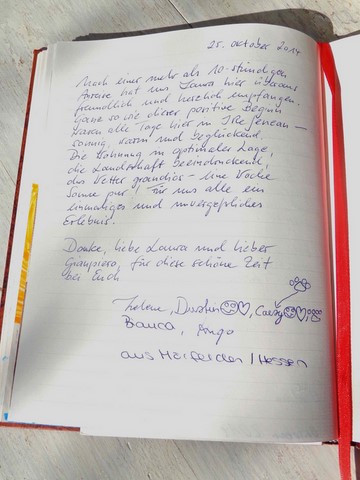 25. Oktober 2014
Nach einer mehr als 10-stündigen
Anreise hat uns Laura hier überaus
freundlich und herzlich empfangen.
Genau so wie dieser positive Beginn
waren alle Tage hier in
sonnig, warm und beglückend.
Die Wohnung in optimaler Lage,
die Landschaft beeindruckend,
das Wetter grandios - eine Woche
Sonne pur! Für uns alle ein
einmaliges und unvergeßliches
Erlebnis.
Danke, liebe Laura und lieber
Giampiero, für diese schöne Zeit
bei Euch
Bianca, Ingo
aus / Hessen